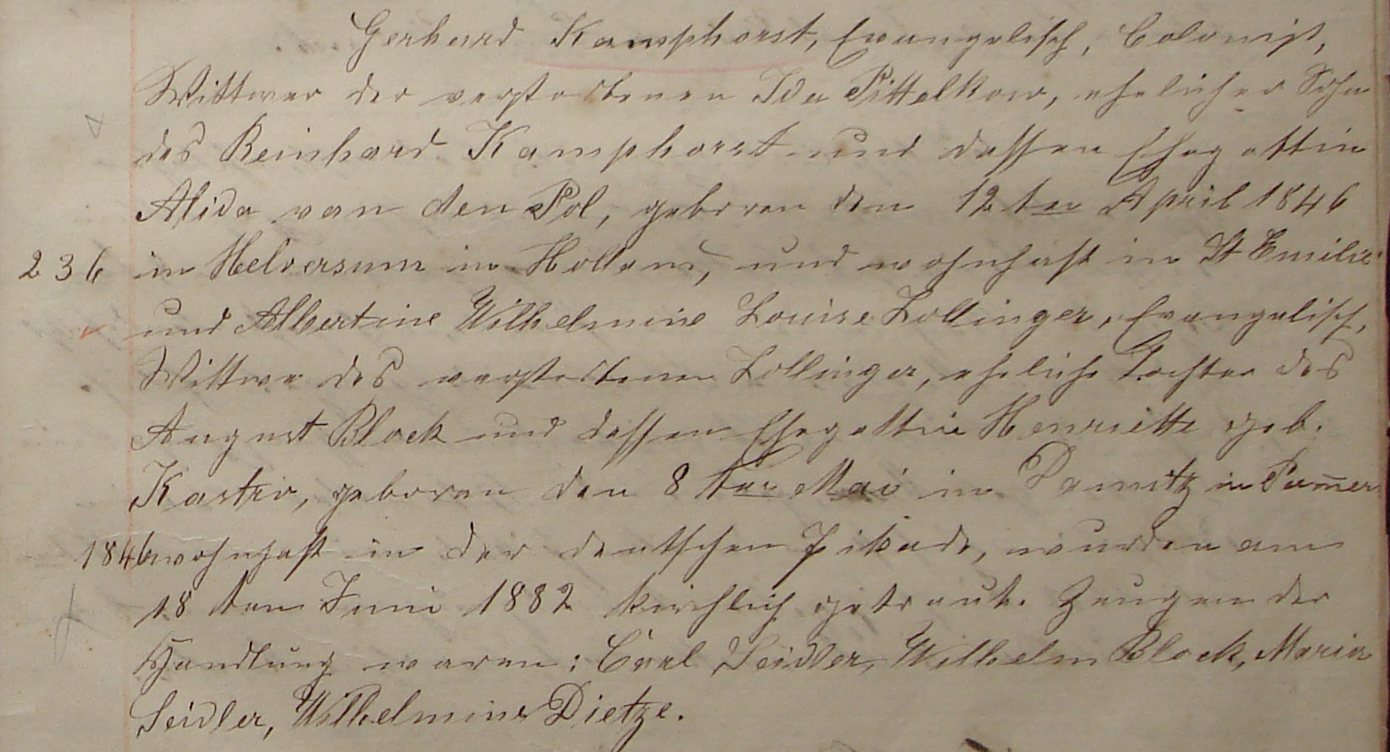 Gerhard Kamphorst, Evangelisch, Colonist,
Wittwer der verstorbenen Ida Pittelkow, ehelicher Sohn
des Reinhard Kamphorst und dessen Ehegattin
Alida van den Pol, geboren den 12ten April 1846
236 in Helversum in Holland, und wohnhaft in St Emilie
und Albertine Wilhelmine Louise Lollinger, Evangelisch,
Wittwe des verstorbenen Lollinger, eheliche Tochter des
August Block und dessen Ehegattin Henriette geb.
geboren den 8ten Mai in in
1846 wohnhaft in der deutschen Pikade, wurden am
18ten Juni 1882 kirchlich getraut. Zeugen der
Handlung waren: Carl Seidler, Wilhelm Block, Maria
Seidler, Wilhelmine Dietze.